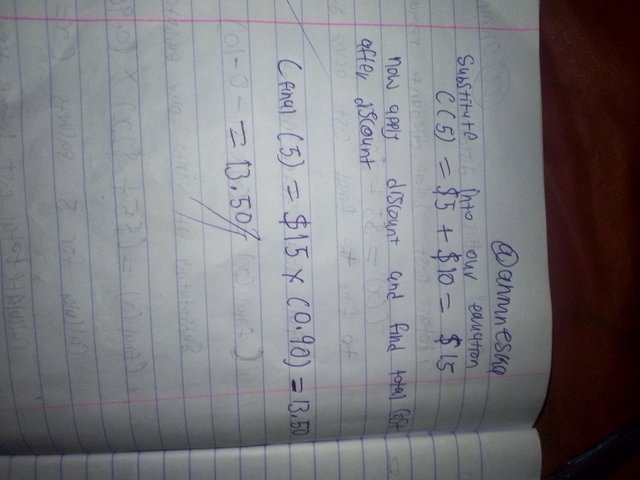 @anmneska
Substitute into our equation
C(5) = $5 + $10 = $15
now apply discount and find total cost
after discount
Cfinal (5) = $15 × (0.90) = 13.50
= 13.50